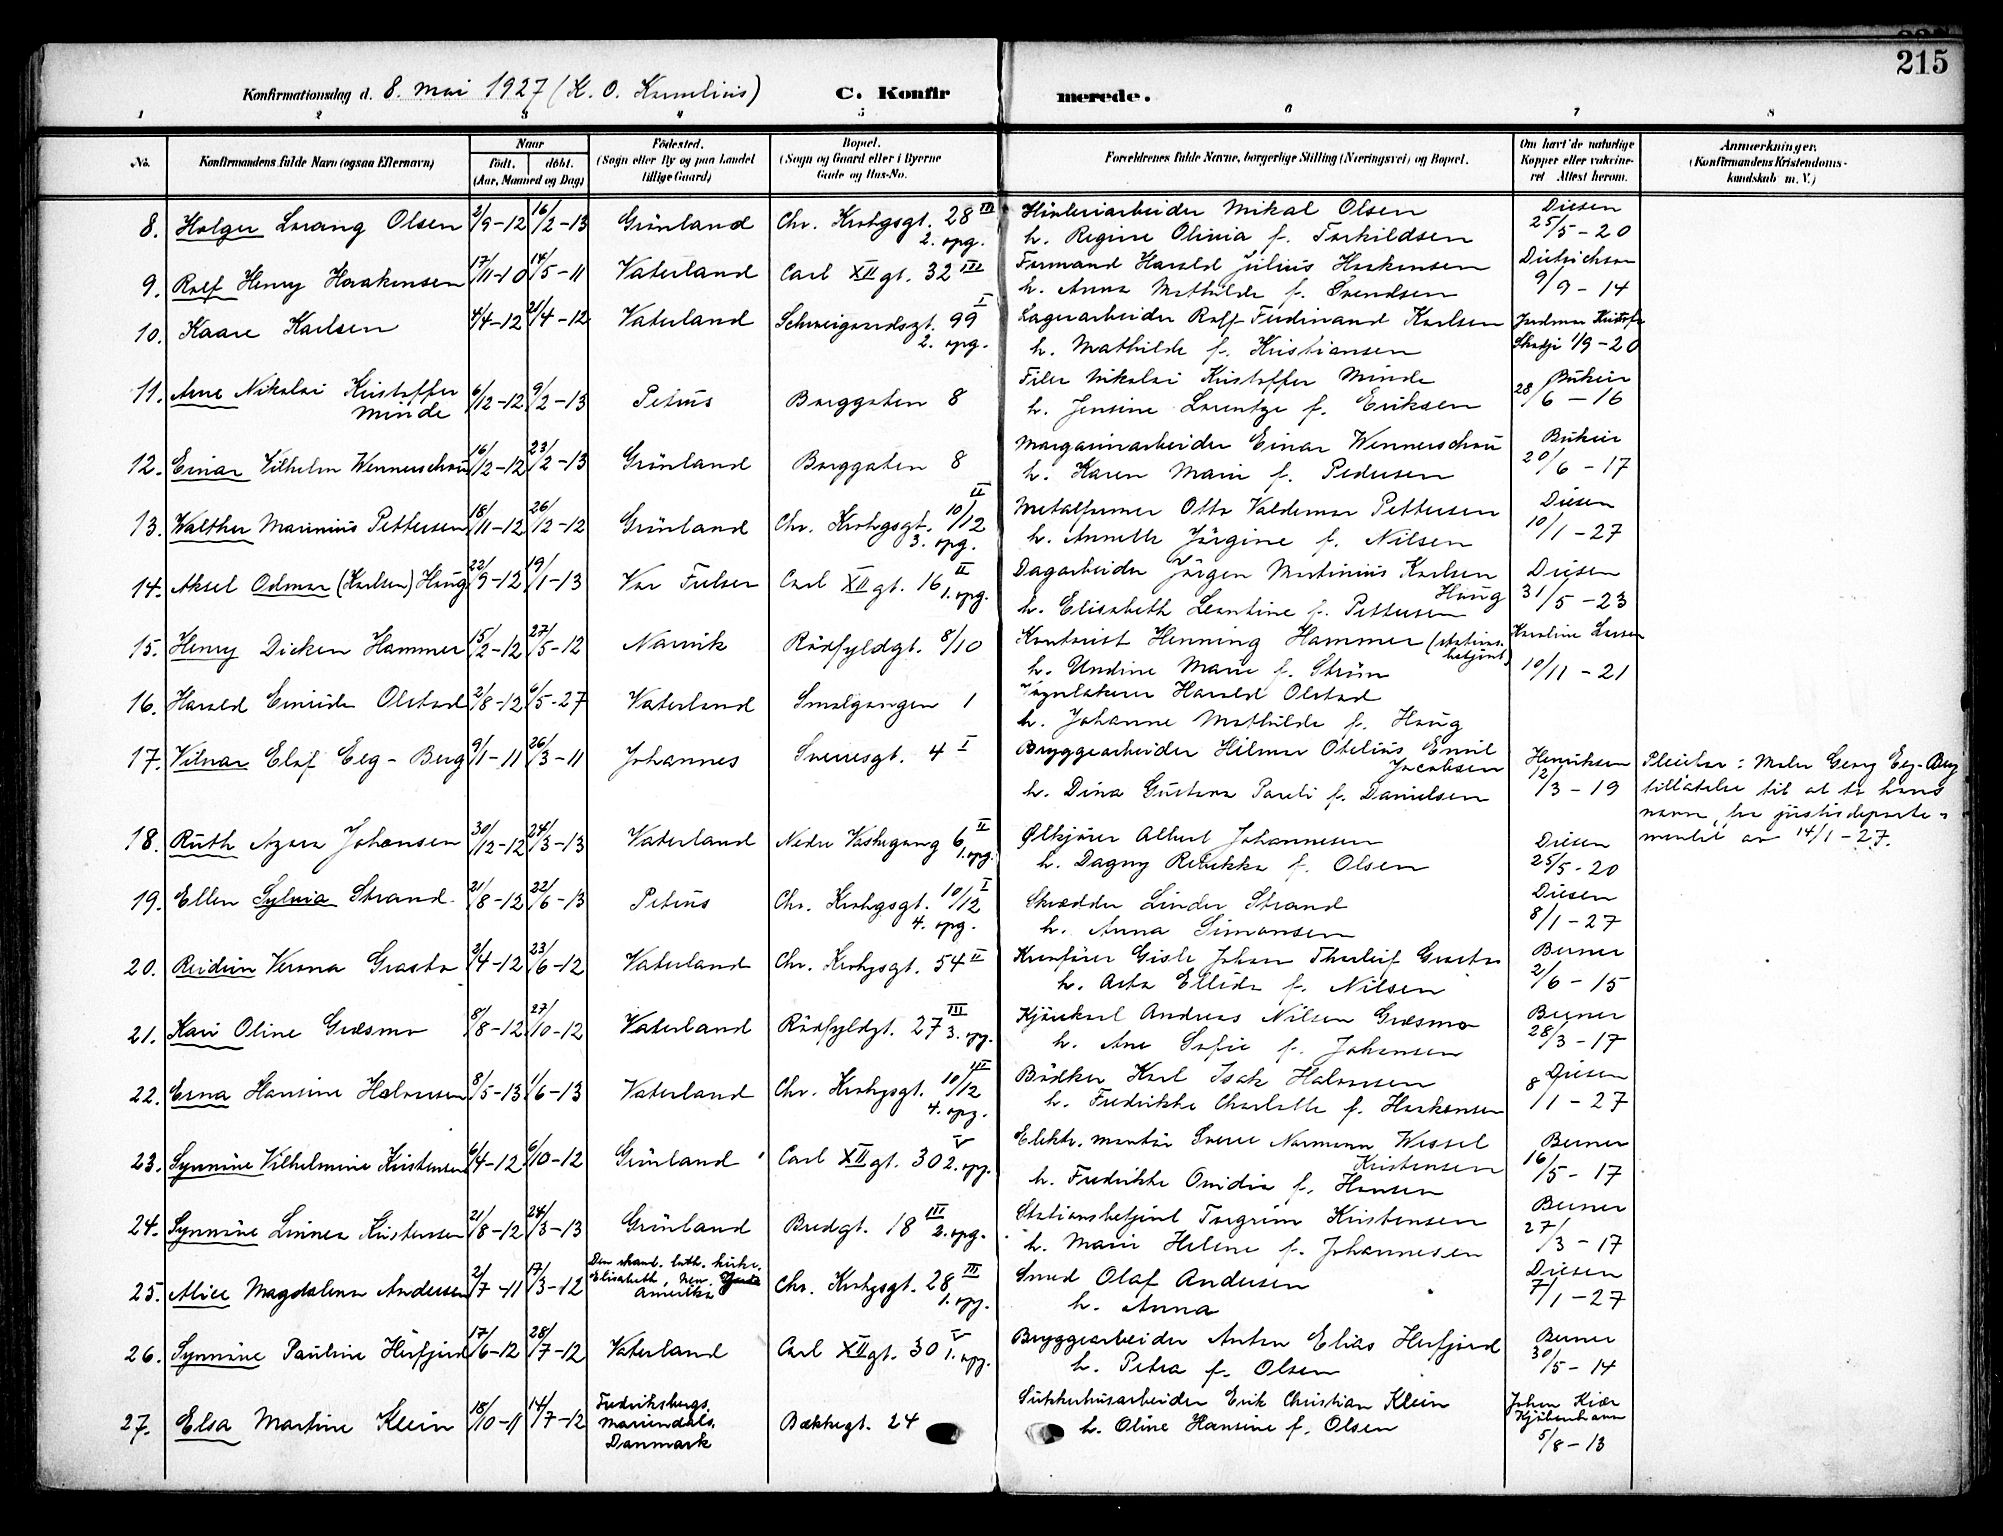 215
Konfirmationsdag d. 8. mai 1927 (K. O. Kornelius) C. Konfirmerede.
1 2 3 4 5 6 7 8
No. Konfirmandens fulde Navn (ogsaa Efternavn) Naar født. døbt. (Aar, Maaned og Dag) Fødested. (Sogn eller By og paa Landet tillige Gaard) Bopæl. (Sogn og Gaard eller i Byerne Gade og Hus-No. Forældrenes fulde Navne, borgerlige Stilling (Næringsvei) og Bopæl. Om havt de naturlige Kopper eller vaccineret. Attest herom. Anmærkninger. (Konfirmandens Kristendomskundskab m. V.)
8. Holger Lorang Olsen 2/9-12 16/2-13 Grønland Chr. Krohgsgt. 28 III 2. opg. Mikal Olsen Diesen
h. Regine Olivia f. Torkildsen 25/5-20
9. Rolf Henry Haakensen 17/11-10 14/5-11 Vaterland Carl XII gt. 32 III Formand Harald Julius Haakensen Dietrichson
h. Anna Mathilde f. Svendsen 9/9-14
10. Kaare Karlsen 4/4-12 21/4-12 Vaterland Schweigaardsgt. 99 I 2. opg. Lagerarbeider Rolf Ferdinand Karlsen
h. Mathilde f. Kristiansen 1/9-20
11. Arne Nikolai Kristoffer Minde 6/12-12 9/2-13 Petrus Borggaten 8 Filer Nikolai Kristoffer Minde
h. Jensine Lorentze f. Eriksen 28/6-16
12. Einar Vilhelm Wennerschou 16/12-12 23/2-13 Grønland Borggaten 8 Margarinarbeider Einar Wennerschou
h. Karen Marie f. Pedersen 20/6-17
13. Walther Marinius Pettersen 18/11-12 26/12-12 Grønland Chr. Krohgsgt. 10/12 II 3. opg. Metalformer Otto Valdemar Pettersen Diesen
h. Annette Jörgine f. Nilsen 10/1-27
14. Aksel Odmar (Karlsen) Haug 22/9-12 19/1-13 Vor Frelser Carl XII gt. 16 II 1. opg. Dagarbeider Jörgen Martinius Karlsen Haug Diesen
h. Elisabeth Leontine f. Pettersen 31/5-23
15. Henry Dicken Hammer 15/2-12 27/5-12 Narvik Rödfyldgt. 8/10 Kontorist Henning Hammer (stationsbetjent) Karoline Larsen
h. Undine Marie f. Ström 10/11-21
16. Harald Einride Olstad 2/8-12 6/5-27 Vaterland Smalgangen 1 Harald Olstad
h. Johanne Mathilde f. Haug
17. Vilnar Elof Eeg-Berg 9/1-11 26/3-11 Johannes Sverresgt. 4 I Bryggearbeider Hilmar Otelius Emil Jacobsen Henriksen
h. Dina Gustava f. Danielsen 12/3-19
Pleiefar: Maler Georg Eeg-Berg
tillatelse til at ta hans
navn, fra justisdeparte-
mentet av 14/1-27.
18. Ruth Azora Johansen 30/12-12 24/3-13 Vaterland Nedre Vaskegang 6 II 1. opg. Ølkjører Albert Johannesen Diesen
h. Dagny Rebekka f. Olsen 25/5-20
19. Ellen Sylvia Strand 21/8-12 22/6-13 Petrus Chr. Krohgsgt. 10/12 I 4. opg. Skrædder Linder Strand Diesen
h. Anna Simonsen 8/1-27
20. Reidun Verona Grasto 2/4-12 23/6-12 Vaterland Chr. Krohgsgt. 54 II Gisle Johan Thorleif Grasto Berner
h. Asta Ellida f. Nilsen 2/6-15
21. Kari Oline Græsmo 8/8-12 27/10-12 Vaterland Rödfyldgt. 27 III 3. opg. Kjörekarl Andreas Nilsen Græsmo Berner
h. Ane Sofie f. Johansen 28/3-17
22. Erna Hansine Halvorsen 8/5-13 1/6-13 Vaterland Chr. Krohgsgt. 10/12 III 4. opg. Bödker Karl Isak Halvorsen Diesen
h. Fredrikke Charlotte f. Haakensen 8/1-27
23. Synnöve Vilhelmine Kristensen 6/4-12 6/10-12 Grönland Carl XII gt. 30 V 2. opg. Elektr. montör Sverre Normann Wessel Kristensen Berner
h. Fredrikke Ovidia f. Hansen 16/5-17
24. Synnöve Linnea Kristensen 21/8-12 24/3-13 Grönland Bredgt. 18 III 2. opg. Stationsbetjent Torgrim Kristensen Berner
h. Marie Helene f. Johannesen 27/3-17
25. Alice Magdalena Andersen 2/7-11 17/3-12 Den skand. luth. kirke. Elisabeth, New Amerika Chr. Krohgsgt. 28 III 1. opg. Smed Olaf Andersen Diesen
h. Anna 7/1-27
26. Synnöve Pauline Herfjord 17/6-12 28/7-12 Vaterland Carl XII gt. 30 V 1. opg. Bryggearbeider Anton Elias Herfjord Berner
h. Petra f. Olsen 30/5-14
27. Elsa Martine Klein 18/10-11 14/7-12 Fredriksbergs, Mariendals, Danmark Bakkegt. 24 Sukkerhusarbeider Erik Christian Klein Johan Kiær Kjöbenhavn
h. Oline Hansine f. Olsen 5/8-13